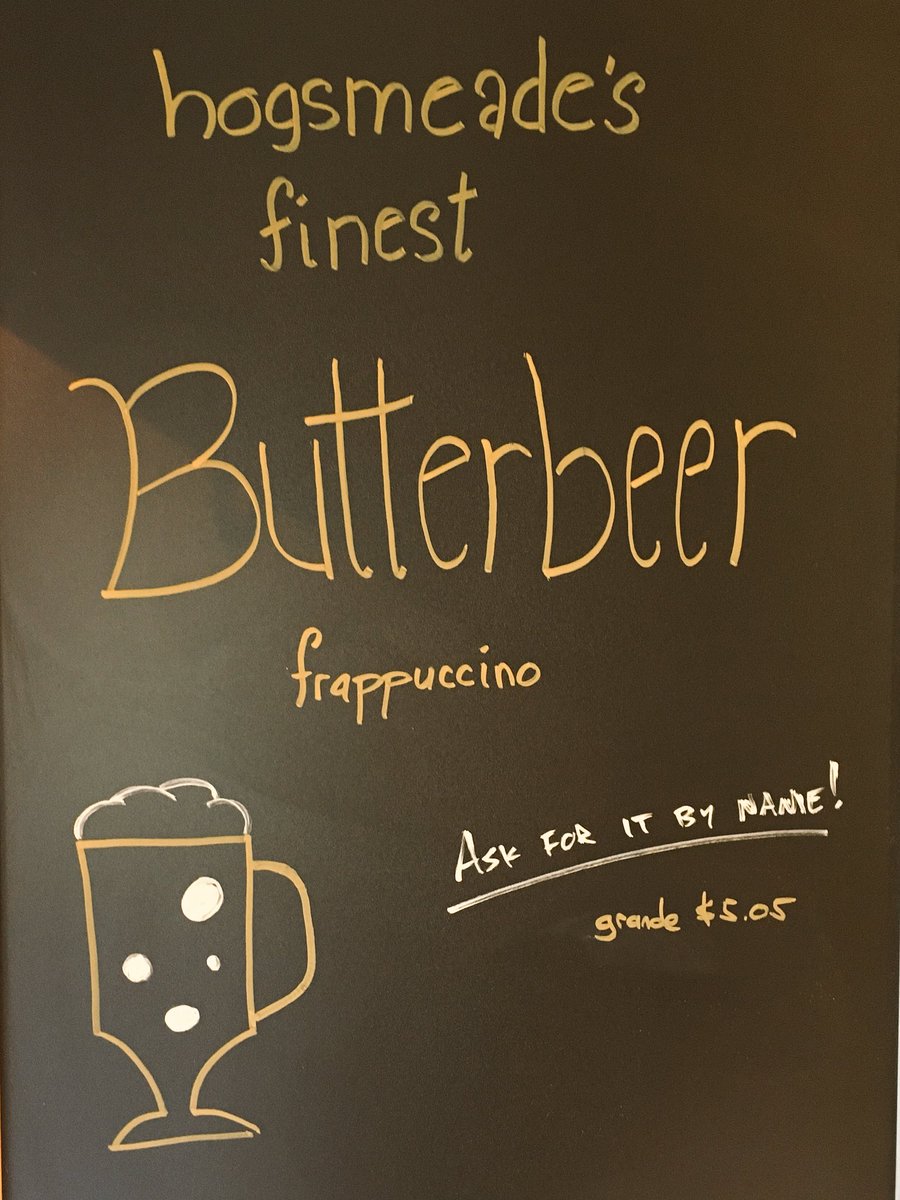 hogsmeade's
finest
Butterbeer
frappuccino
ASK FOR IT BY NAME!
grande $5.05